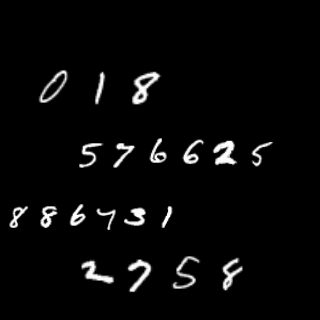 018
576625
886731
2758